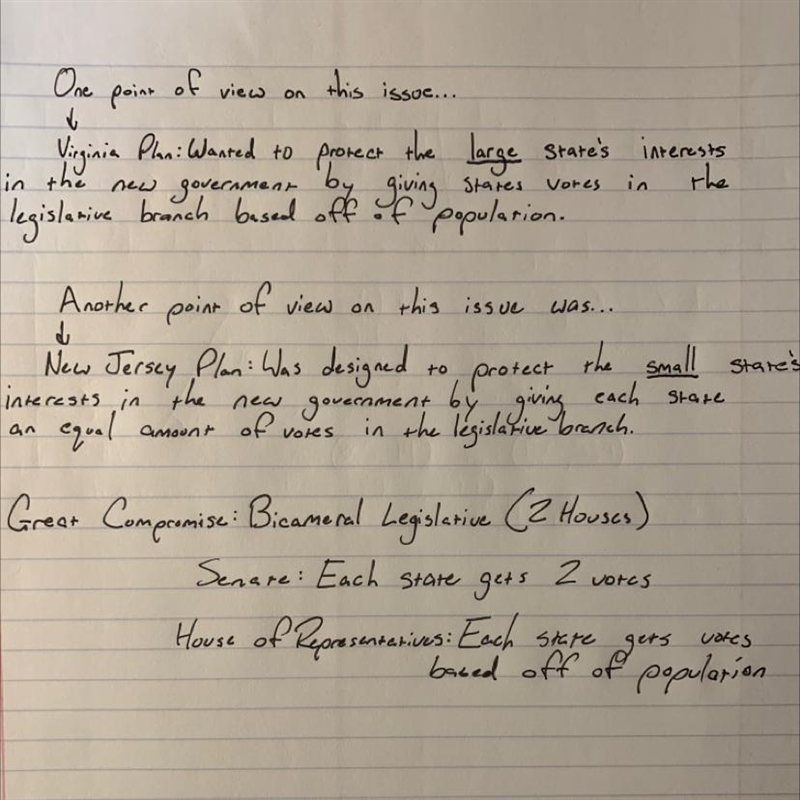 One point of view on this issue...
↓
Virginia Plan: Wanted to protect the large state's interests
in the new government by giving states votes in the
legislative branch based off of population.
Another point of view on this issue was...
↓
New Jersey Plan: Was designed to protect the small state's
interests in the new government by giving each state
an equal amount of votes in the legislative branch.
Great Compromise: Bicameral Legislative (2 Houses)
Senate: Each state gets 2 votes
House of Representatives: Each state gets votes
based off of population